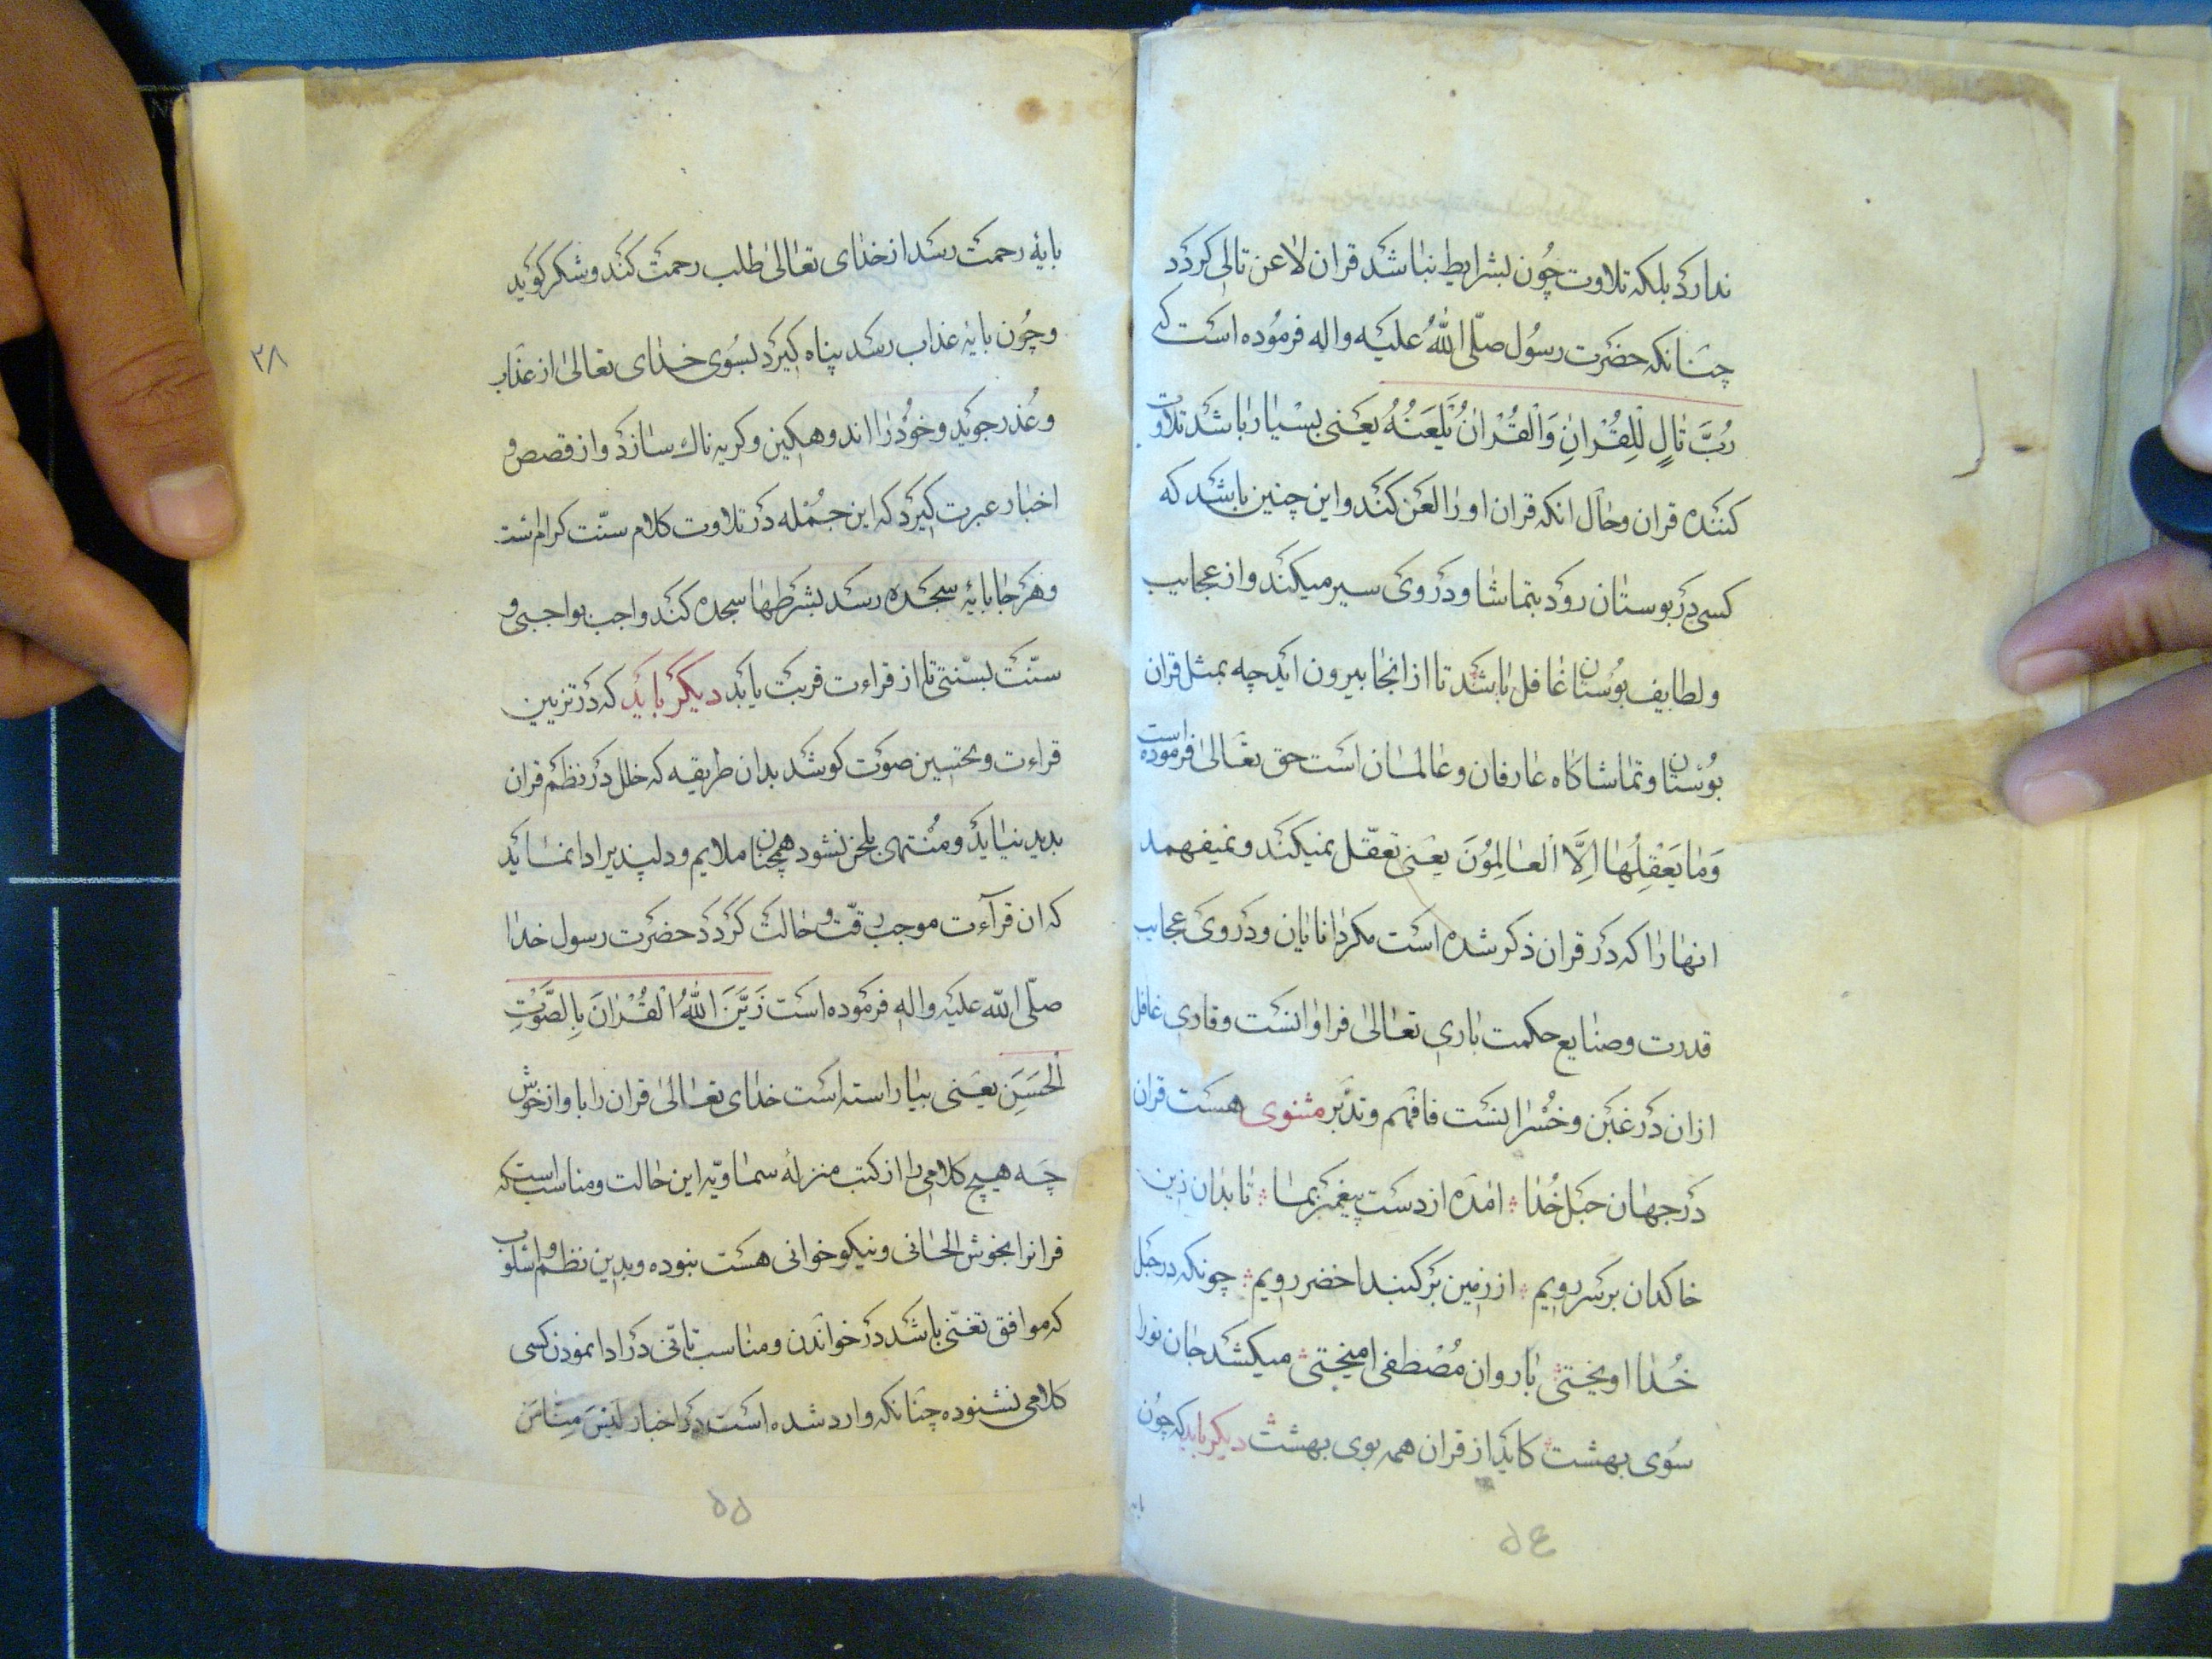 ندارد بلکه تلاوت چون بشرایط نباشد قران لاعن تالی کردد
چنانکه حضرت رسُول صلّی اللّٰهُ علیه واله فرمُوده است که
رُبَّ تٰالٍ لِلِقُرٰانِ وَالْقُرٰانُ یَلْعَنُهُ یعنی بسْیار باشد تلاوت
کننده قران وحال انکه قران اورا لعن کند واین چنین باشد که
کسی در بوستان رود بتماشا و در وی سیر میکند واز عجایب
ولطایف بوُستان غافل باشد تا از انجا بیرون اید چه بمثل قران
بوُستان و تماشاکاه عارفان وعالمان است حق تعالی فرموده است
وَمٰا یَعْقِلُهٰا اِلَّا الْعٰالِمُونَ یعنی تعقّل نمیکند و نمیفهمد
انها را که در قران ذکر شده است مکر دانایان و در وی عجایب
قدرت وصنایع حکمت باری تعالیٰ فراوانست وقاری غافل
ازان در غبن و خُسْرانست فافهم وتدّبر مثنوی هست قران
در جهان حبل خُدا امده از دست پیغمبر بما تا بدان زین
خاکدان برسر رویم از زمین بر کنبد اخضر رویم چونکه در حبل
خُدا اویختی با روان مُصْطفی امیختی میکشد جان تورا
سُوی بهشت کاید از قران همه بوی بهشت دیکر باید که چون
با
۵۴
بایهٔ رحمت رسد از خدای تعالیٰ طلب رحمت کند و شکر کوید
وچُون بایه عذاب رسد پناه کیرد بسُوی خدای تعالیٰ از عذاب
وعُذر جوید و خوُد را اندوهکین وکریه ناك سازد واز قصص و
اخبار عبرت کیرد که این جمُله در تلاوت کلام سنّت کرام است
وهر جا بایهٔ سجده رسد بشرطها سجده کند واجب بواجبی و
سنّت بسنّتی تا از قراءت قربت یابد دیکر باید که در تزیین
قراءت و تحسین صوت کوشد بدان طریقه که خلل در نظم قران
پدید نیاید و مُنْتهی بلحن نشود همچنان ملایم و دلپذیر ادا نماید
که ان قرآءت موجب رقّت و حالت کردد حضرت رسول خدا
۳۸
صلّی اللّه علیه واله فرموده است زَیَّنَ اللّٰهُ الْقُرٰانَ بِالصَّوْتِ
الْحَسَنِ یعنی بیاراسته است خدای تعالیٰ قران را باواز خوش
چه هیچ کلامی را از کتب منزلهٔ سماویّه این حالت و مناسبت که
قرانرا بخوش الحانی ونیکو خوانی هست نبوده وبدین نظم واسلوب
که موافق تغنّی باشد در خواندن و مناسب تانّی در ادا نمودن کسی
کلامی نشنوده چنانکه وارد شده است در اخبار لَیْسَ مِنّا مَن
۵۵